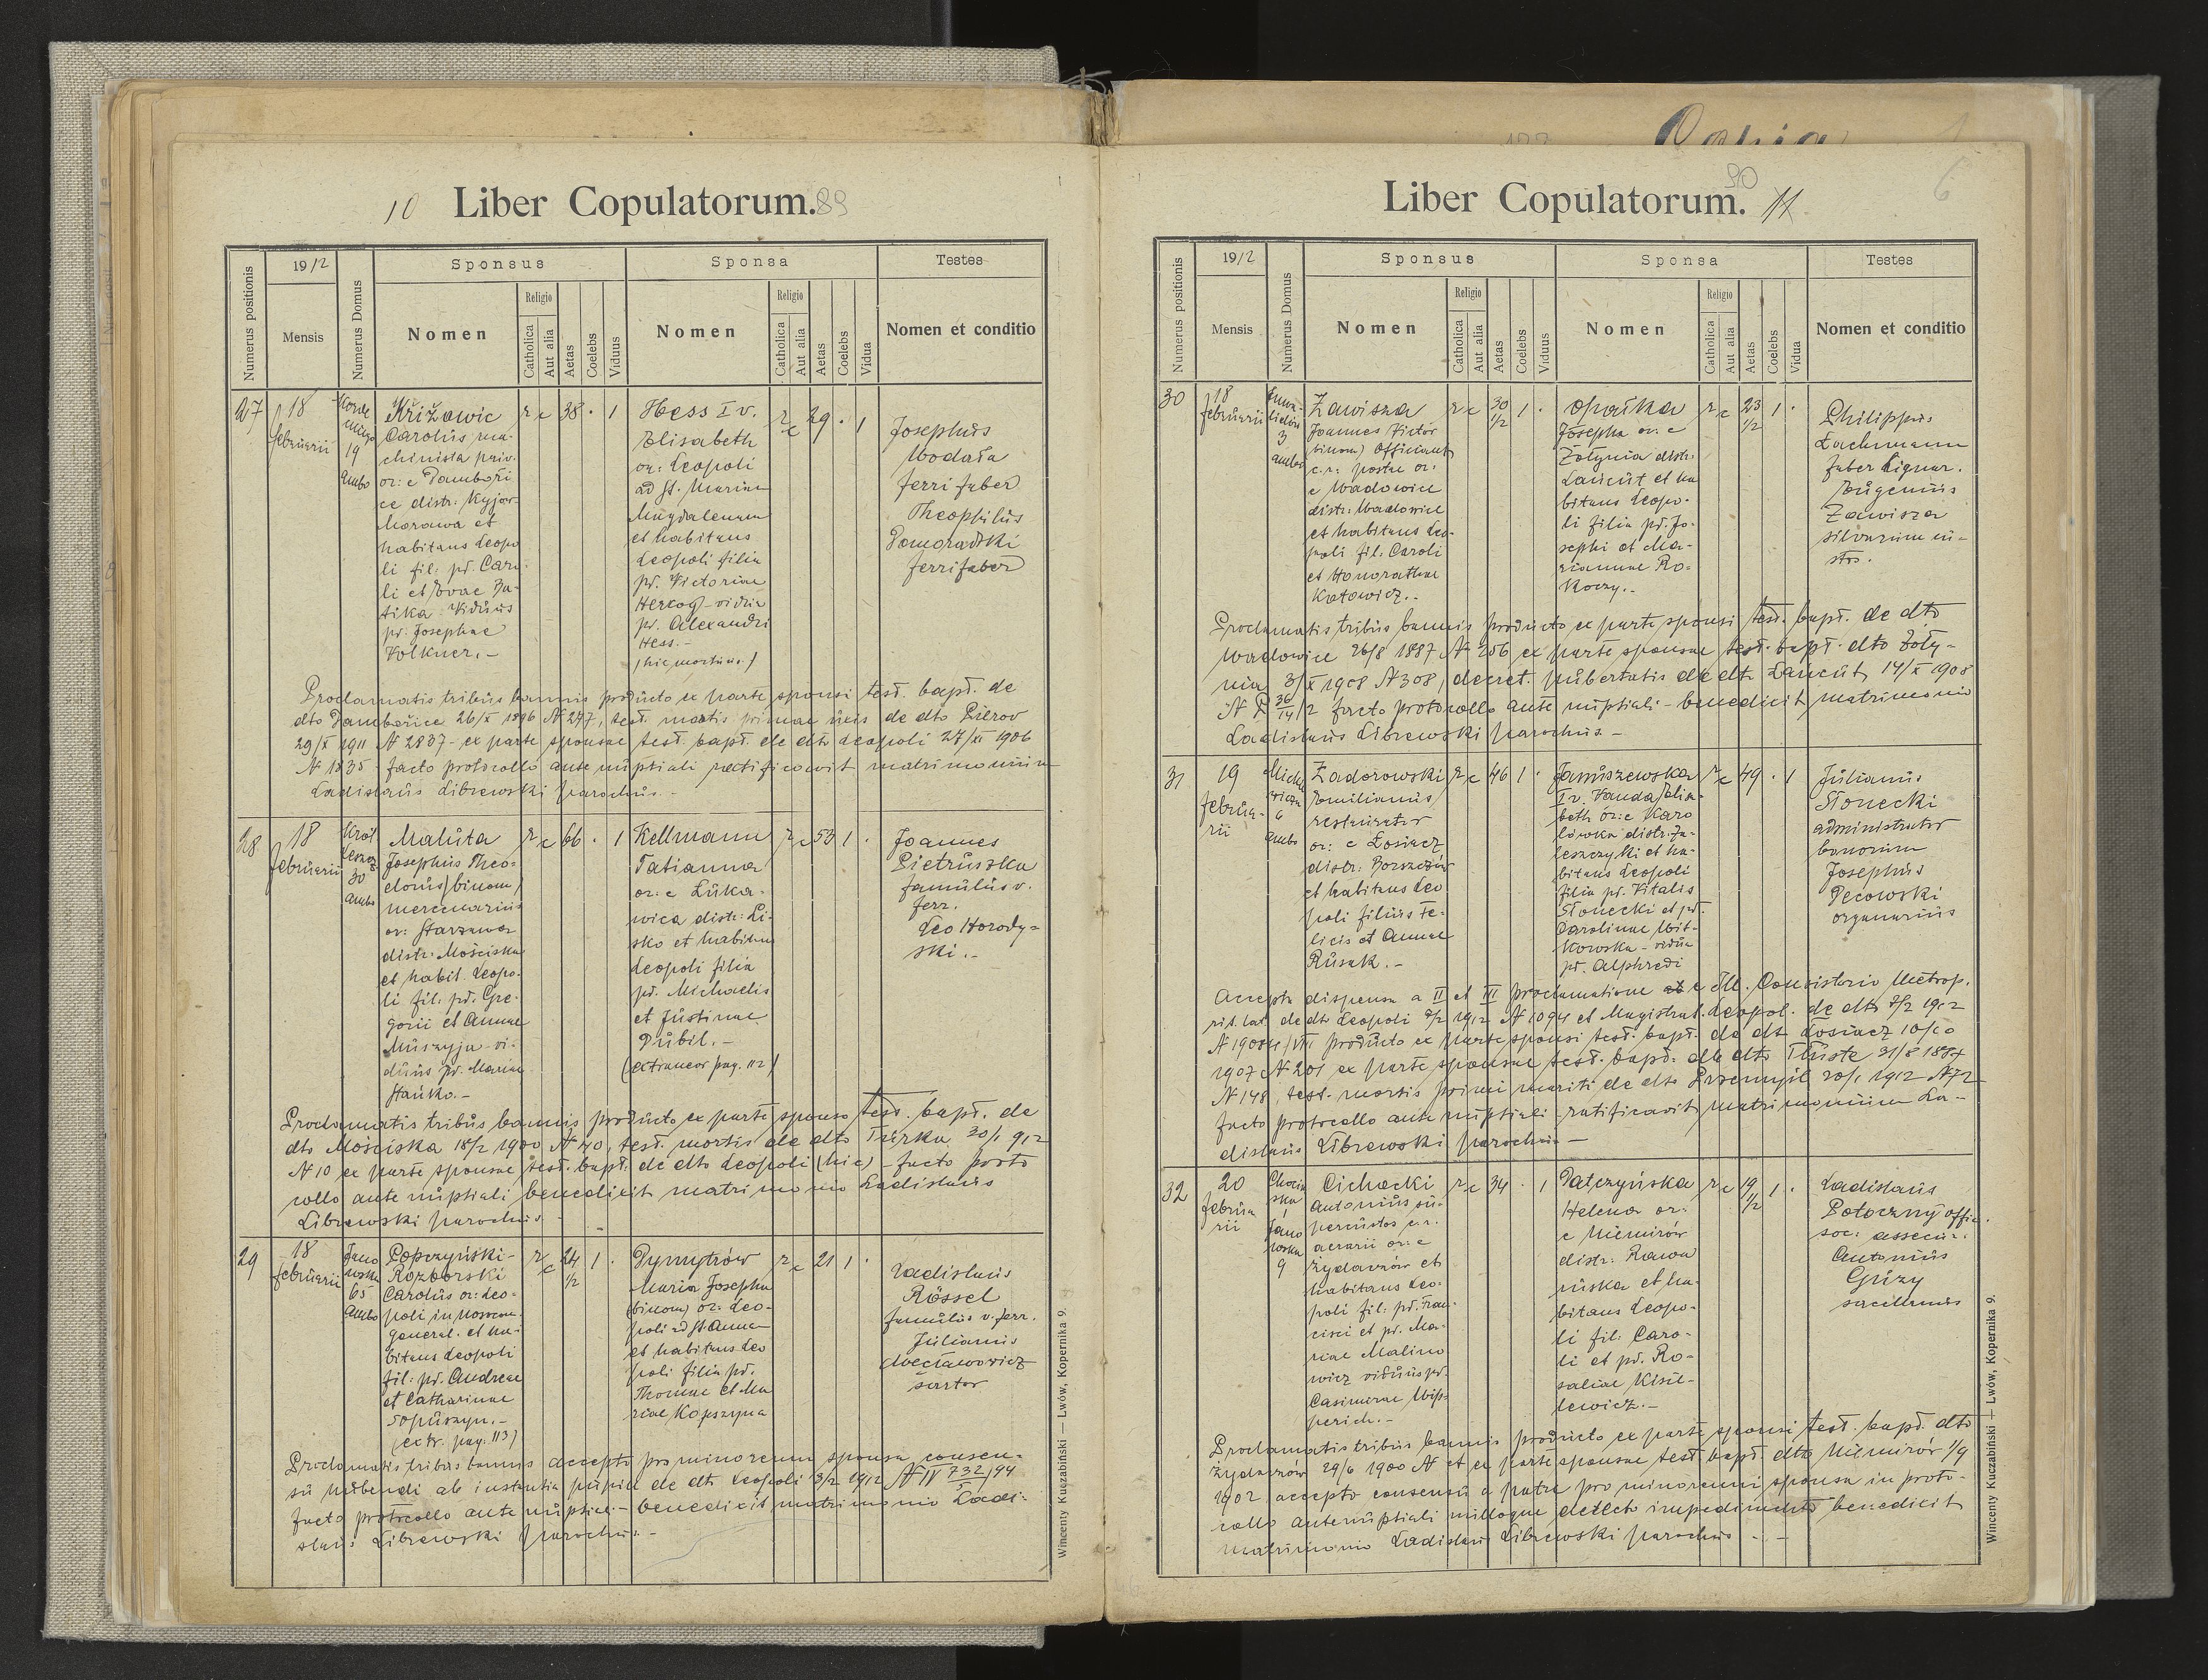 10 Liber Copulatorum. 89
Numerus positionis
1912
Mensis
Numerus Domus
Sponsus
Nomen
Religio
Catholica
Aut alia
Aetas
Coelebs
Viduus
Sponsa
Nomen
Religio
Catholica
Aut alia
Aetas
Coelebs
Vidua
Testes
Nomen et conditio
27
18
februarii
19
ambo
Křižowic
Carolus ma-
chinista priv.
or: e Damboři
ce distr: Kyjov
Morawa et
habitans Leopo
li fil: pd. Caro
li et Evae Ja-
tika Viduus
pd. Josephae
Volkner. -
rc 38 · 1
Hess I v.
Elisabeth
or: Leopoli
ad St. Mariam
Magdalenam
et habitans
Leopoli filia
pd. Victoriae
Herzog - vidua
pd. Alexandri
Hess. -
rc 29 · 1
Josephus
Wodala
ferri faber
Theophilus
Pomoradzki
ferri faber
Proclamatis tribus bannis producto ex parte sponsi test. bapt. de
dto Dambořice 26/X 1896 N 247, test. mortis primae uxis de dto Pierov
29/X 1911 N 2837 - ex parte sponsae test. bapt. de dto Leopoli 27/XI 1906
N 1835 - facto protocollo ante nuptiali ratificavit matrimonium
Ladislaus Librewski parochus. -
28
18
februarii
Król
Leszcz
30
ambo
Maluta
Josephus Theo-
dorus (binom)
mercenarius
or: Starzawa
distr: Mościska
et habit. Leopo-
li fil: pd. Gre-
gorii et Annae
Muszyja - vi-
duus pd. Mariae
Hańko. -
rc 66 · 1
Kellmann
Tatianna
or: e Łuka-
wica distr: Li-
sko et habitans
Leopoli filia
pd. Michaelis
et Justinae
Dubil. -
(extraneor pag. 112)
rc 53 1 ·
Joannes
Pietruszka
famulus v.
ferr.
Leo Horody-
ski. -
Proclamatis tribus bannis producto ex parte sponso test. bapt. de
dto Mościska 18/2 1900 N 40, test. mortis de dto Turka 30/1 912
N 10 ex parte sponsae test. bapt. de dto Leopoli (hic) - facto proto
collo ante nuptiali benedixit matrimonio Ladislaus
Librewski parochus -
29
18
februarii
Jano
wska
65
ambo
Popczyński-
Rozborski
Carolus or: Leo-
poli in nosocom.
general. et ha-
bitans Leopoli
fil: pd. Andreae
et Catharinae
Sopuszyn. -
(extr. pag. 113)
rc 24 1/2 1 ·
Dymytrów
Maria Josepha
(binom) or: Leo-
poli ad St Annam
et habitans Leo
poli filia pd.
Thomae et Ma
riae Kopszyna
rc 21 1 ·
Ladislaus
Rössel
famulus v. ferr.
Julianus
sartor
Proclamatis tribus bannis accepto pro minorenni sponsa consen-
su nubendi ab instantia pupill. de dto Leopoli 13/2 1912 N IV 732/94
facto protocollo ante nuptiali - benedixit matrimonio Ladi-
slaus Librewski parochus. -
Wincenty Kuczabiński — Lwów, Kopernika 9.
Liber Copulatorum. 90 11
6
Numerus positionis
1912
Mensis
Numerus Domus
Sponsus
Nomen
Religio
Catholica
Aut alia
Aetas
Coelebs
Viduus
Sponsa
Nomen
Religio
Catholica
Aut alia
Aetas
Coelebs
Vidua
Testes
Nomen et conditio
30
18
februarii
3
ambo
Zawisza
Joannes Victor
(binom) Officiant
c.r. postae or:
e Wadowice
distr: Wadowice
et habitans Leo-
poli fil: Caroli
et Honorathae
Katowicz. -
rc 30 1/2 1 ·
Opałka
Josepha or: e
Żołynia distr:
Łańcut et ha
bitans Leopo-
li filia pd. Jo-
sephi et Ma-
riannae Ro-
koczy. -
rc 23 1/2 1 ·
Philippus
Lachmann
faber lignar.
Eugenius
Zawisza
silvarum cu-
stos.
Proclamatis tribus bannis producto ex parte sponsi test. bapt. de dto
Wadowice 26/8 1887 N 256 ex parte sponsae test. bapt. dto Żoły-
nia 3/X 1908 N 308, decret. pubertatis de dto Łańcut 14/X 1908
N P 36/14/2 facto protocollo ante nuptiali - benedixit matrimonio
Ladislaus Librewski parochus. -
31
19
februa-
rii
6
ambo
Zadorowski
Emilianus
restaurator
or: e Łosiacz
distr: Borszczów
et habitans Leo
poli filius Fe-
licis et Annae
Rusak. -
rc 46 1 ·
Januszewska
I v. Vanda Elisa-
beth or: e Karo
lówka distr: Za-
leszczyki et ha-
bitans Leopoli
filia pd. Vitalis
Słonecki et pd.
Carolinae Wit-
kowska - vidua
pd. Alphredi
rc 49 · 1
Julianus
Słonecki
administrator
bonorum
Josephus
Pecowski
organarius
Accepta dispensa a II et III proclamatione e Ill. Consistorio Metrop.
rit. lat. de dto Leopoli 9/2 1912 N 1094 et Magistrat. Leopol. de dto 7/2 1912
N 19084/VIII producto ex parte sponsi test. bapt. de dto Łosiacz 10/10
1907 N 201 ex parte sponsae test. bapt. de dto Tłuste 31/8 1887
N 148, test. mortis primi mariti de dto Przemyśl 20/1 1912 N 72
facto protocollo ante nuptiali - ratificavit matrimonium La-
dislaus Librewski parochus -
32
20
februa
rii
Chocim
ska
1
Jano
wska
9
Cichocki
Antonius su-
percustos c.r.
aerarii or: e
Żydaczów et
habitans Leo-
poli fil: pd. Fran-
cisci et pd. Ma-
riae Malino
wicz viduus pd.
Casimirae
rc 34 · 1
Patczyńska
Helena or:
e Niemirów
distr: Rawa
ruska et ha-
bitans Leopo-
li fil: Caro-
li et pd. Ro-
saliae Kisie-
lewicz. -
rc 19 1/2 1 ·
Ladislaus
Potoczny offic.
soc: assecur.
Antonius
Gruzy
sacellanus
Proclamatis tribus bannis producto ex parte sponsi test. bapt. dto
Żydaczów 29/6 1900 N et ex parte sponsae test. bapt. dto Niemirów 1/9
1902, accepto consensu a patre pro minorenni sponsa in proto-
collo antenuptiali nulloque detecto impedimento benedixit
matrimonio Ladislaus Librewski parochus - -
Wincenty Kuczabiński — Lwów, Kopernika 9.